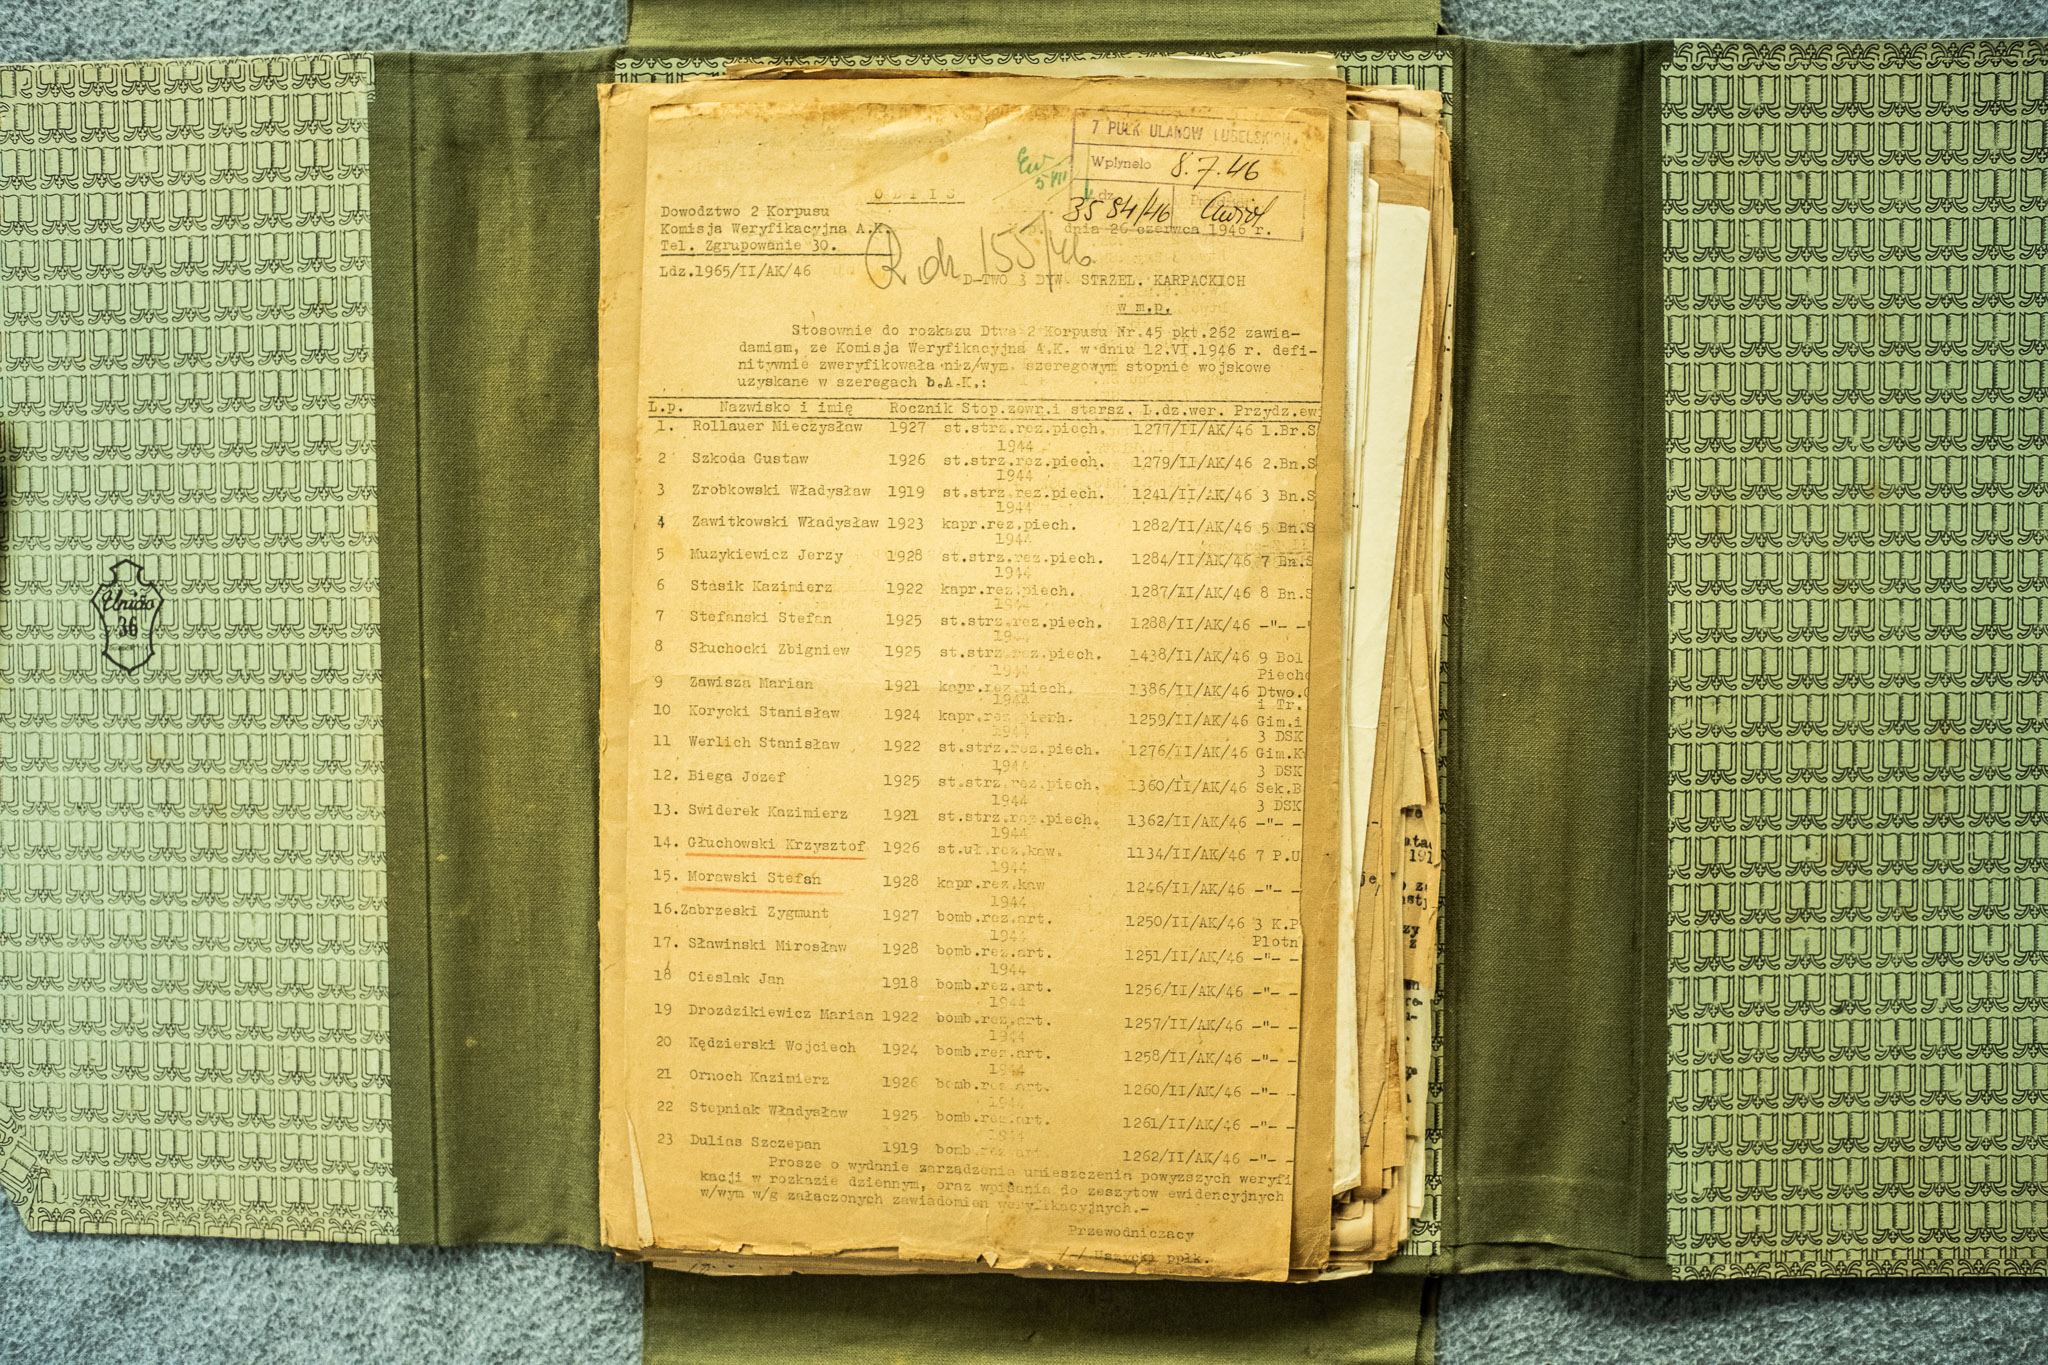 7 PUŁK UŁANOW LUBELSKICH
Wpłynęło 8.7.46
Ldz.
3584/46
O D P I S
Dowodztwo 2 Korpusu
Komisja Weryfikacyjna A.K.
Tel. Zgrupowanie 30.
dnia 26 czerwca 1946 r.
Ldz.1965/II/AK/46
R.dz 155/46
D-TWO 3 DYW. STRZEL. KARPACKICH
w m.p.
Stosownie do rozkazu Dtwa 2 Korpusu Nr.45 pkt.262 zawia-
damiam, ze Komisja Weryfikacyjna A.K. w dniu 12.VI.1946 r. defi-
nitywnie zweryfikowała niz/wym. szeregowym stopnie wojskowe
uzyskane w szeregach b.A.K.:
L.p. Nazwisko i imię Rocznik Stop.zewr.i starsz. L.dz.wer. Przydz.ewi
1. Rollauer Mieczysław 1927 st.strz.rez.piech. 1277/II/AK/46 1.Br.S
1944
2 Szkoda Gustaw 1926 st.strz.rez.piech. 1279/II/AK/46 2.Bn.S
1944
3 Zrobkowski Władysław 1919 st.strz.rez.piech. 1241/II/AK/46 3 Bn.S
1944
4 Zawitkowski Władysław 1923 kapr.rez.piech. 1282/II/AK/46 5 Bn.S
1944
5 Muzykiewicz Jerzy 1928 st.strz.rez.piech. 1284/II/AK/46 7 Bn.S
1944
6 Stasik Kazimierz 1922 kapr.rez.piech. 1287/II/AK/46 8 Bn.S
1944
7 Stefanski Stefan 1925 st.strz.rez.piech. 1288/II/AK/46 -"- -"
1944
8 Słuchocki Zbigniew 1925 st.strz.rez.piech. 1438/II/AK/46 9 Bol
1944 Piecho
9 Zawisza Marian 1921 kapr.rez.piech. 1386/II/AK/46 Dtwo.
1944 i Tr.
10 Korycki Stanisław 1924 kapr.rez.piech. 1259/II/AK/46 Gim.i
1944 3 DSK
11 Werlich Stanisław 1922 st.strz.rez.piech. 1276/II/AK/46 Gim.K
1944 3 DSK
12. Biega Jozef 1925 st.strz.rez.piech. 1360/II/AK/46 Sek.B
1944 3 DSK
13. Swiderek Kazimierz 1921 st.strz.rez.piech. 1362/II/AK/46 -"- -
1944
14. Głuchowski Krzysztof 1926 st.uł.rez.kaw. 1134/II/AK/46 7 P.U
1944
15. Morawski Stefan 1928 kapr.rez.kaw 1246/II/AK/46 -"- -
1944
16.Zabrzeski Zygmunt 1927 bomb.rez.art. 1250/II/AK/46 3 K.P
1944 Plotn
17. Sławinski Mirosław 1928 bomb.rez.art. 1251/II/AK/46 -"- -
1944
18 Cieslak Jan 1918 bomb.rez.art. 1256/II/AK/46 -"- -
1944
19 Drozdzikiewicz Marian 1922 bomb.rez.art. 1257/II/AK/46 -"- -
1944
20 Kędzierski Wojciech 1924 bomb.rez.art. 1258/II/AK/46 -"- -
1944
21 Ornoch Kazimierz 1926 bomb.rez.art. 1260/II/AK/46 -"- -
1944
22 Stepniak Władysław 1925 bomb.rez.art. 1261/II/AK/46 -"- -
1944
23 Dulias Szczepan 1919 bomb.rez.art 1262/II/AK/46 -"- -
Prosze o wydanie zarządzenia umieszczenia powyzszych weryfi
kacji w rozkazie dziennym, oraz wpisania do zeszytow ewidencyjnych
w/wym w/g załaczonych zawiadomien weryfikacyjnych.-
Przewodniczacy
/-/ Uszycki ppłk.
Unida
36